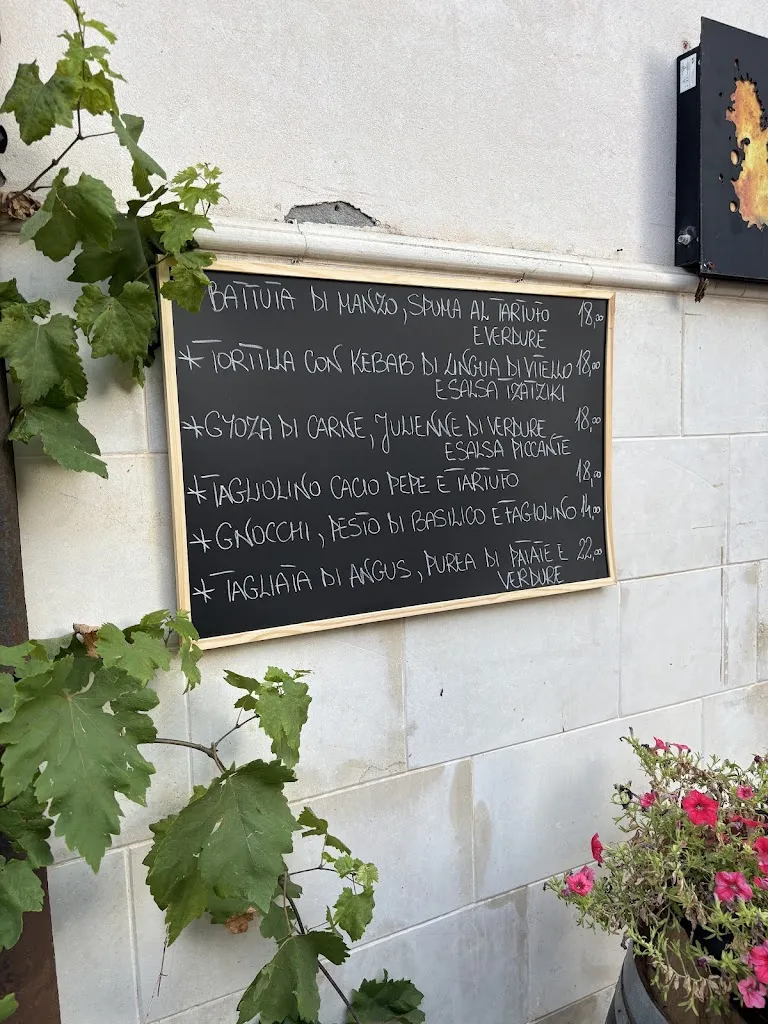 BATTUTA DI MANZO, SPUMA AL TARTUFO 18,00
E VERDURE
* TORTILLA CON KEBAB DI LINGUA DI VITELLO 18,00
E SALSA TZATZIKI
* GYOZA DI CARNE, JULIENNE DI VERDURE 18,00
E SALSA PICCANTE
* TAGLIOLINO CACIO PEPE E TARTUFO 18,00
* GNOCCHI, PESTO DI BASILICO E FAGIOLINO 14,00
* TAGLIATA DI ANGUS, PUREA DI PATATE E 22,00
VERDURE